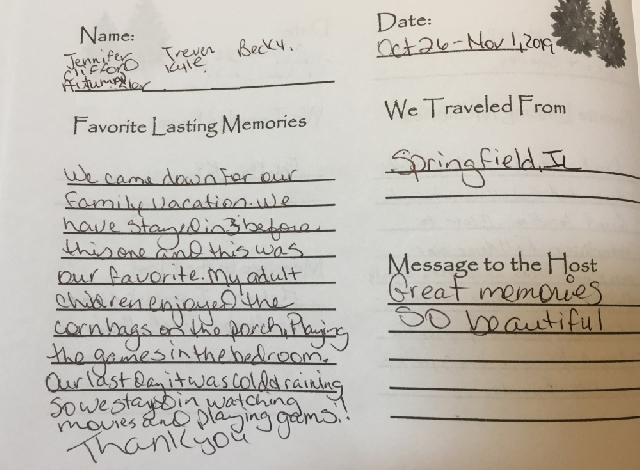 Name:
Jennifer Trever Becky.
Clifford Kyle.
Autumn
Favorite Lasting Memories
We came down for our
family vacation. We
have stayed in 3 before
this one and this was
our favorite. My adult
children enjoyed the
cornbags on the porch, Playing
the games in the bedroom.
Our last day it was cold & raining
so we stayed in watching
movies and playing games!!
Thank you
Date:
Oct 26 - Nov 1, 2019
We Traveled From
Springfield, IL
Message to the Host
Great memories
So beautiful